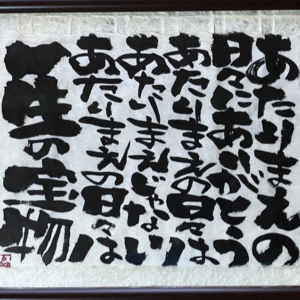 あたりまえの
日々にありがとう
あたりまえの日々は
あたりまえじゃない
あたりまえの日々は
一生の宝物